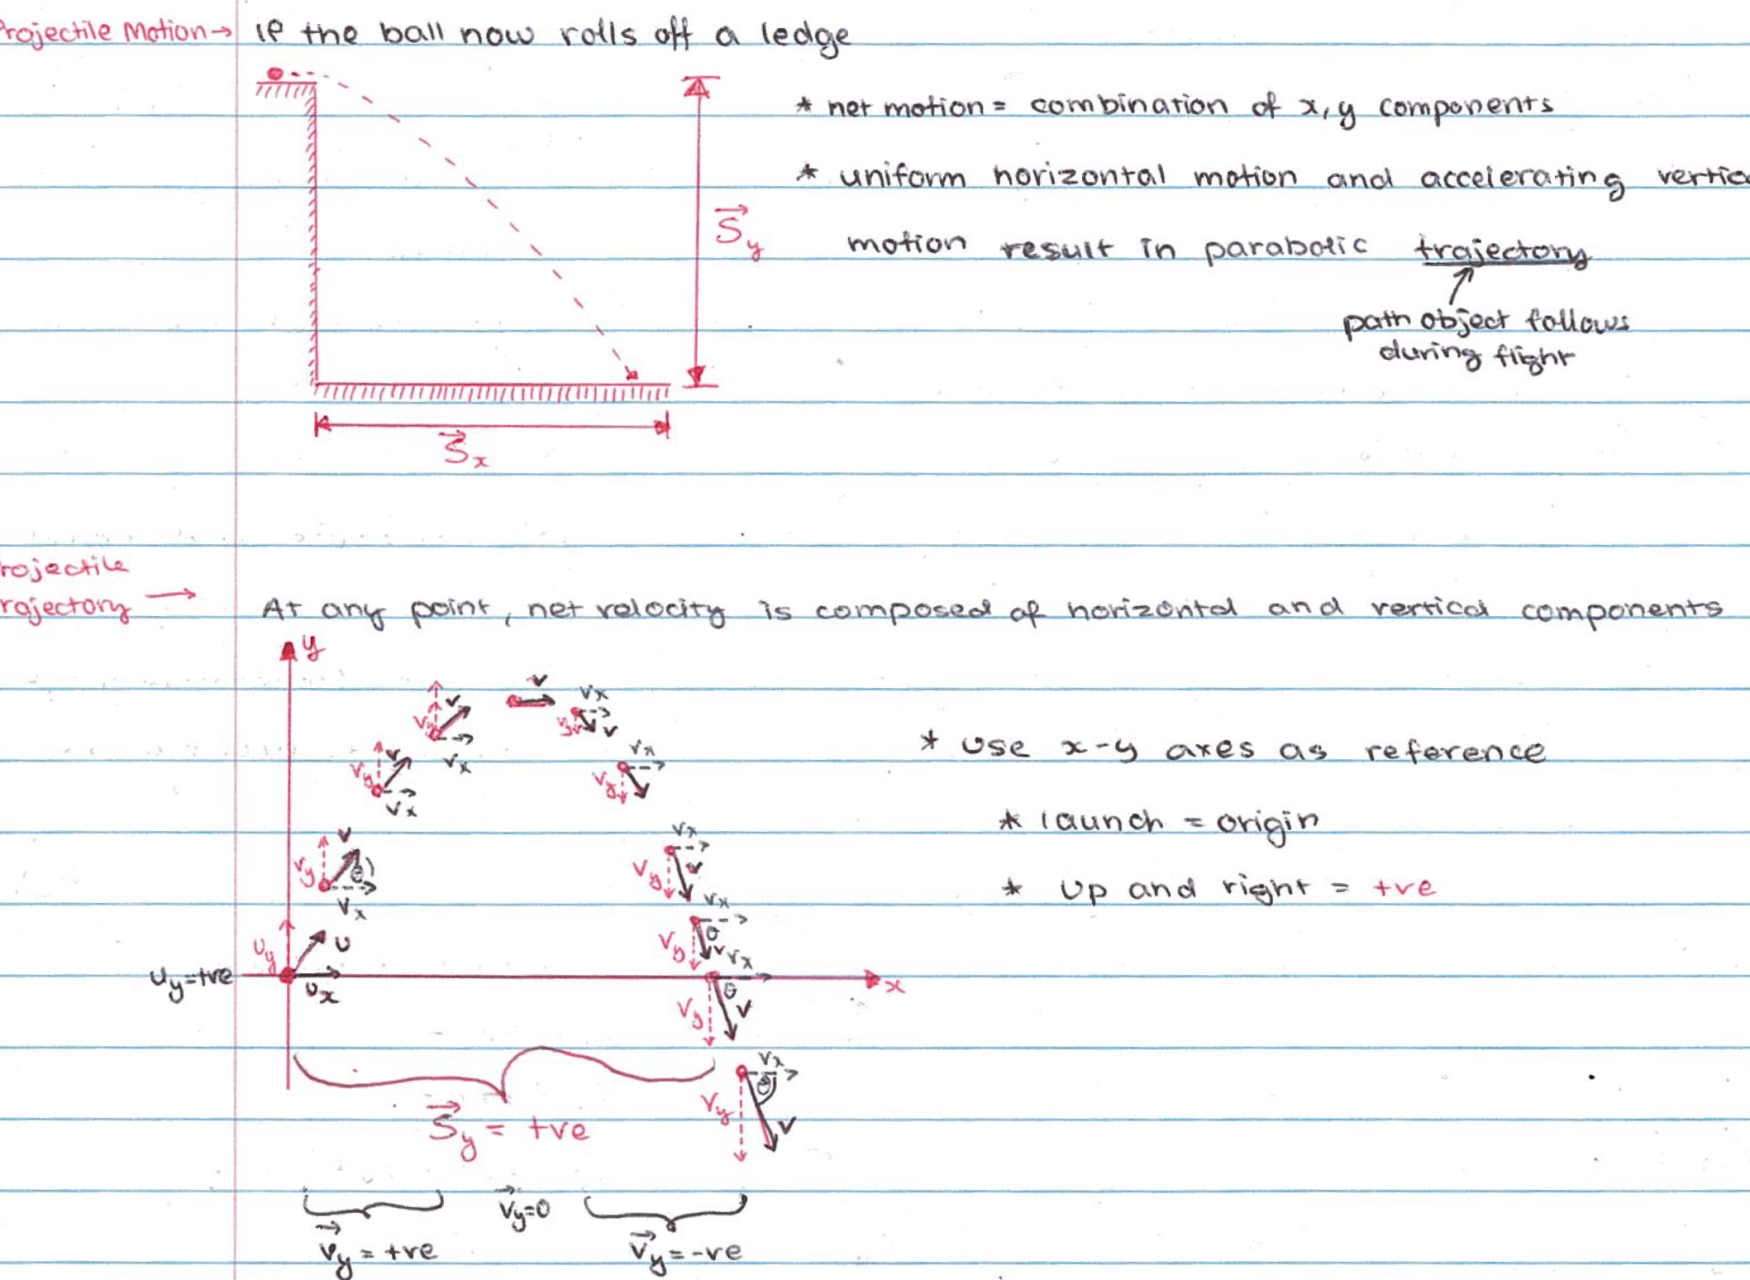 Projectile Motion → If the ball now rolls off a ledge
* net motion = combination of x, y components
* uniform horizontal motion and accelerating
motion result in parabolic trajectory
path object follows
during flight
S⃗y
S⃗x
rojectile
rajectory →
At any point, net velocity is composed of horizontal and vertical components
y
v
vx
vy
v
vx
vy
v
vx
vy
v
vx
vy
v
vx
vy
v
θ
vx
vx
vy
v
vx
vy
θ
v
uy
u
ux
uy=+ve
vx
vy
θ
v
x
vx
vy
θ
v
* use x-y axes as reference
* launch = origin
* up and right = +ve
S⃗y = +ve
v⃗y = +ve
v⃗y=0
v⃗y = -ve